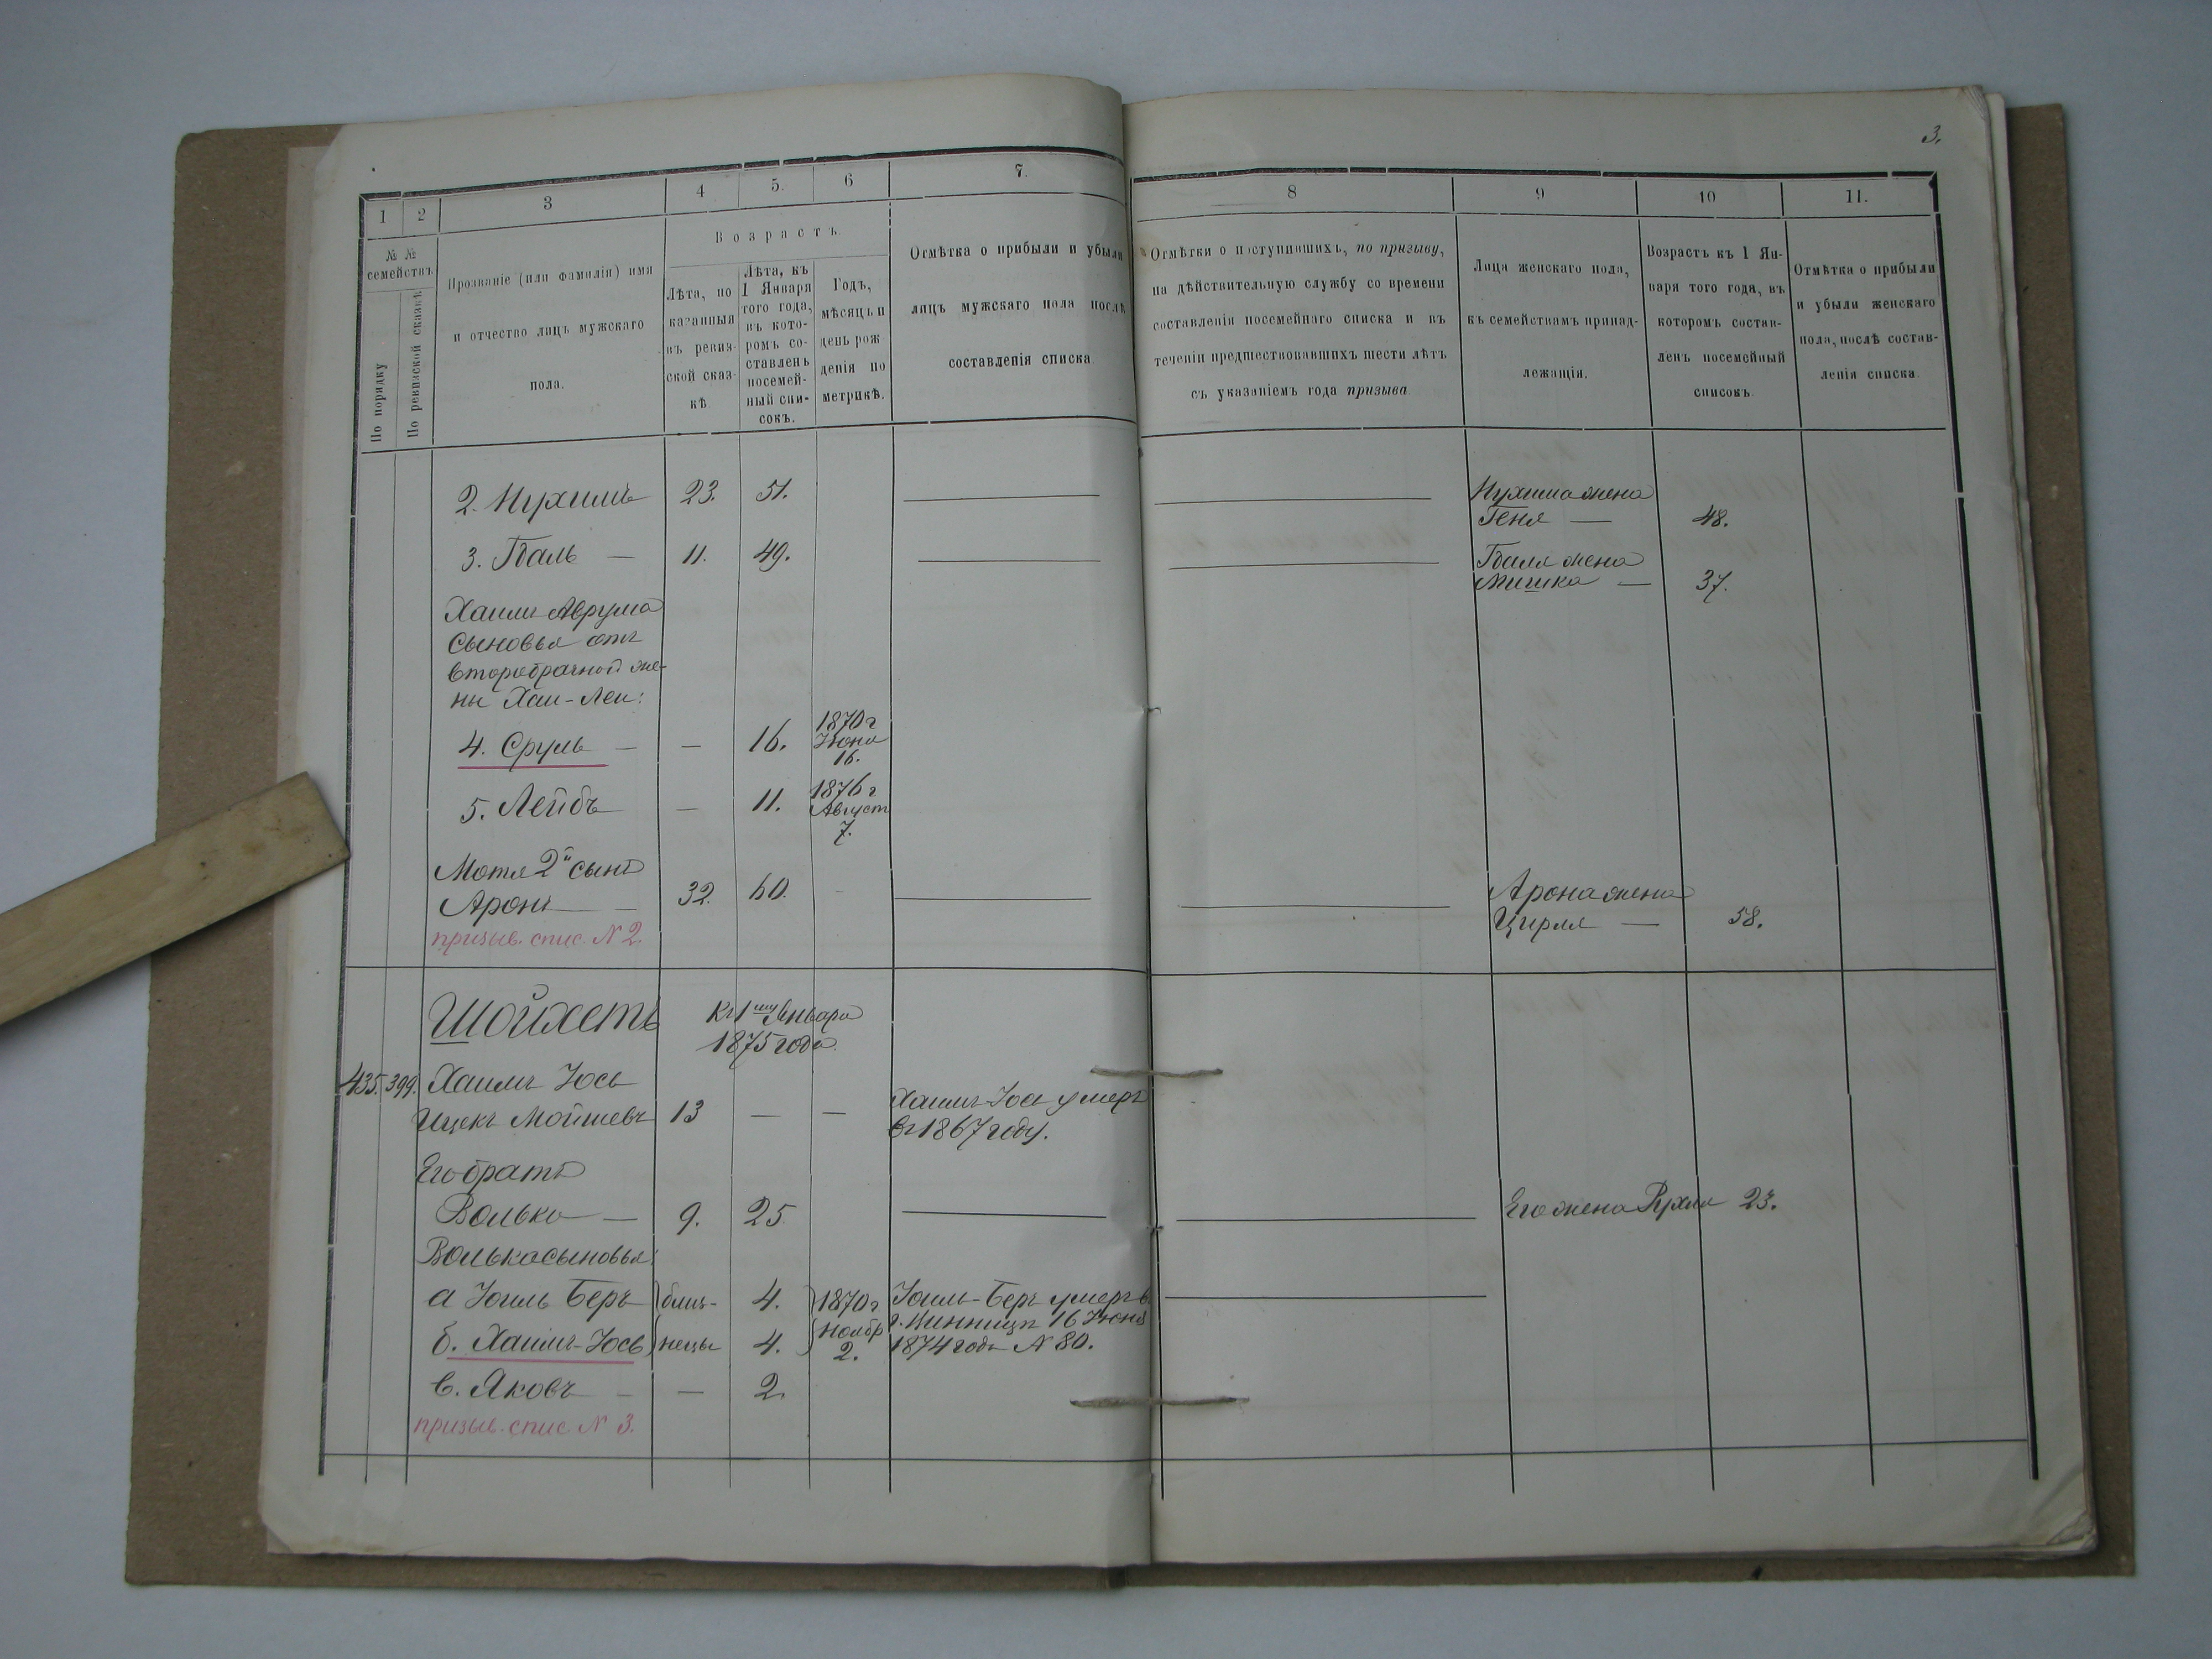 3.
1
2
3
4
5.
6
7.
8
9
10
11.
№ №
семействъ
По порядку
По ревизской сказкѣ
Прозваніе (или фамилія) имя
и отчество лицъ мужскаго
пола.
Возрастъ.
Лѣта, по
казанныя
въ ревиз-
ской сказ-
кѣ
Лѣта, къ
1 Января
того года,
въ кото-
ромъ со-
ставленъ
посемей-
ный спи-
сокъ.
Годъ,
мѣсяцъ и
день рож
денія по
метрикѣ.
Отмѣтка о прибыли и убыли
лицъ мужскаго пола послѣ
составленія списка
Отмѣтки о поступившихъ, по призыву,
на дѣйствительную службу со времени
составленія посемейнаго списка и въ
теченіи предшествовавшихъ шести лѣтъ
съ указаніемъ года призыва.
Лица женскаго пола,
къ семействамъ принад-
лежащія.
Возрастъ къ 1 Ян-
варя того года, въ
которомъ состав-
ленъ посемейный
списокъ.
Отмѣтка о прибыли
и убыли женскаго
пола, послѣ состав-
ленія списка.
2. Нухимъ 23. 51.
Нухима жена
Геня — 48.
3. Гдаль — 11. 49.
Гдаля жена
Мишка — 37.
Хаима Аврума
сыновья отъ
второбрачной же-
ны Хаи-Леи:
4. Сруль — — 16. 1870 г
Іюня
16.
5. Лейбъ — 11. 1876 г
Август
7.
Мотя 2й сынъ
Аронъ — 32. 60. -
Арона жена
Цирля — 58.
призыв. спис. N 2.
Шойхетъ
Къ 1му Января
1875 года.
435. 399. Хаимъ Іось
Ицекъ Мойшевъ 13 — —
Хаимъ-Іось умеръ
въ 1867 году.
Его братъ
Волько — 9. 25
Его жена Рухля 23.
Волька сыновья:
а Іоиль Беръ близ- 4. 1870 г
б. Хаимъ-Іось нецы 4. Ноябр
2.
Іоиль-Беръ умеръ в
г. Винницѣ 16 Іюня
1874 года N 80.
в. Яковъ - — 2.
призыв. спис. N 3.